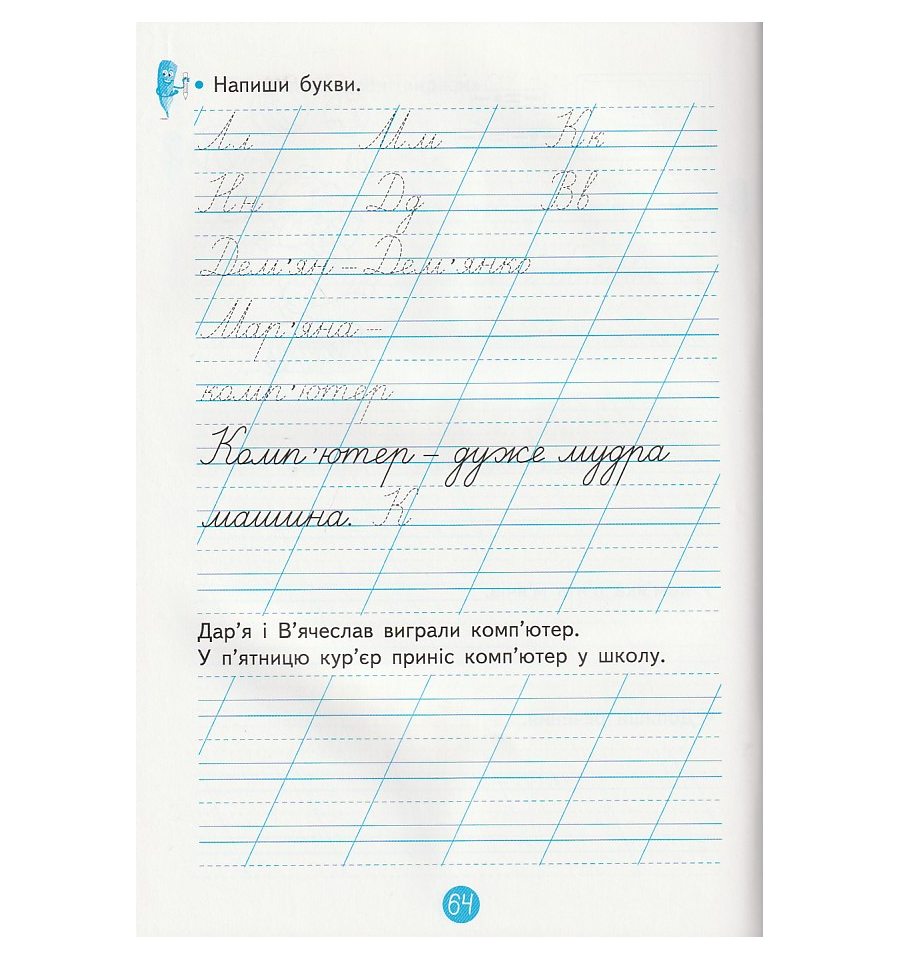 Напиши букви.
Лл Мм Кк
Нн Дд Вв
Дем'ян – Дем'янко
Мар'яна –
комп'ютер
Комп'ютер – дуже мудра
машина. К
Дар'я і В'ячеслав виграли комп'ютер.
У п'ятницю кур'єр приніс комп'ютер у школу.
64